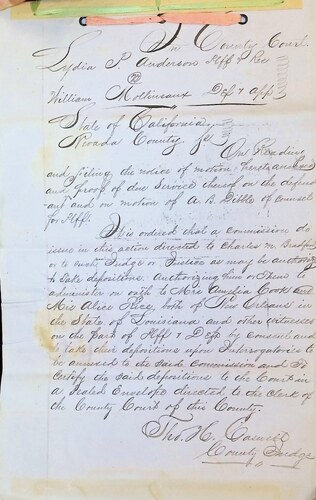 In County Court
Lydia P Anderson Plff & Res
vs
William Mollineaux Deft & App
State of California
Nevada County ss
On Reading
and filing the notice of motion hereto annexed
and proof of due Service thereof on the defend
ant and on motion of A B Dibble of counsel
for Plff.
It is ordered that a Commission do
issue in this action directed to Charles M
or to such Judge or Justice as may be authorized
to take depositions. Authorizing him or them to
administer an oath to Mrs Amelia Cook and
Mrs Alice both of New Orleans in
the State of Louisiana and other witnesses
on the part of Plff & Deft by consent and
to take their depositions upon Interrogatories to
be annexed to the said Commission and to
Certify the said depositions to the Court in
a Sealed Envelope directed to the Clerk of
the County Court of this County.
Tho. H. Caswell
County Judge